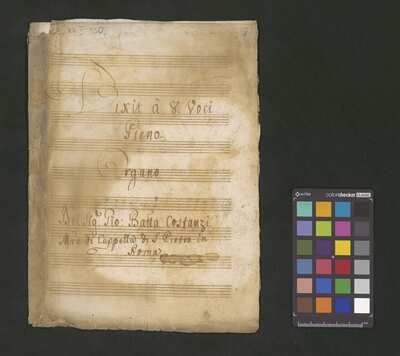 Dixit à 8. Voci
Pieno
Organo
Del Sigr. Gio: Batta Costanzi
Mro. di Cappella di S. Pietro in
Roma
colorchecker CLASSIC